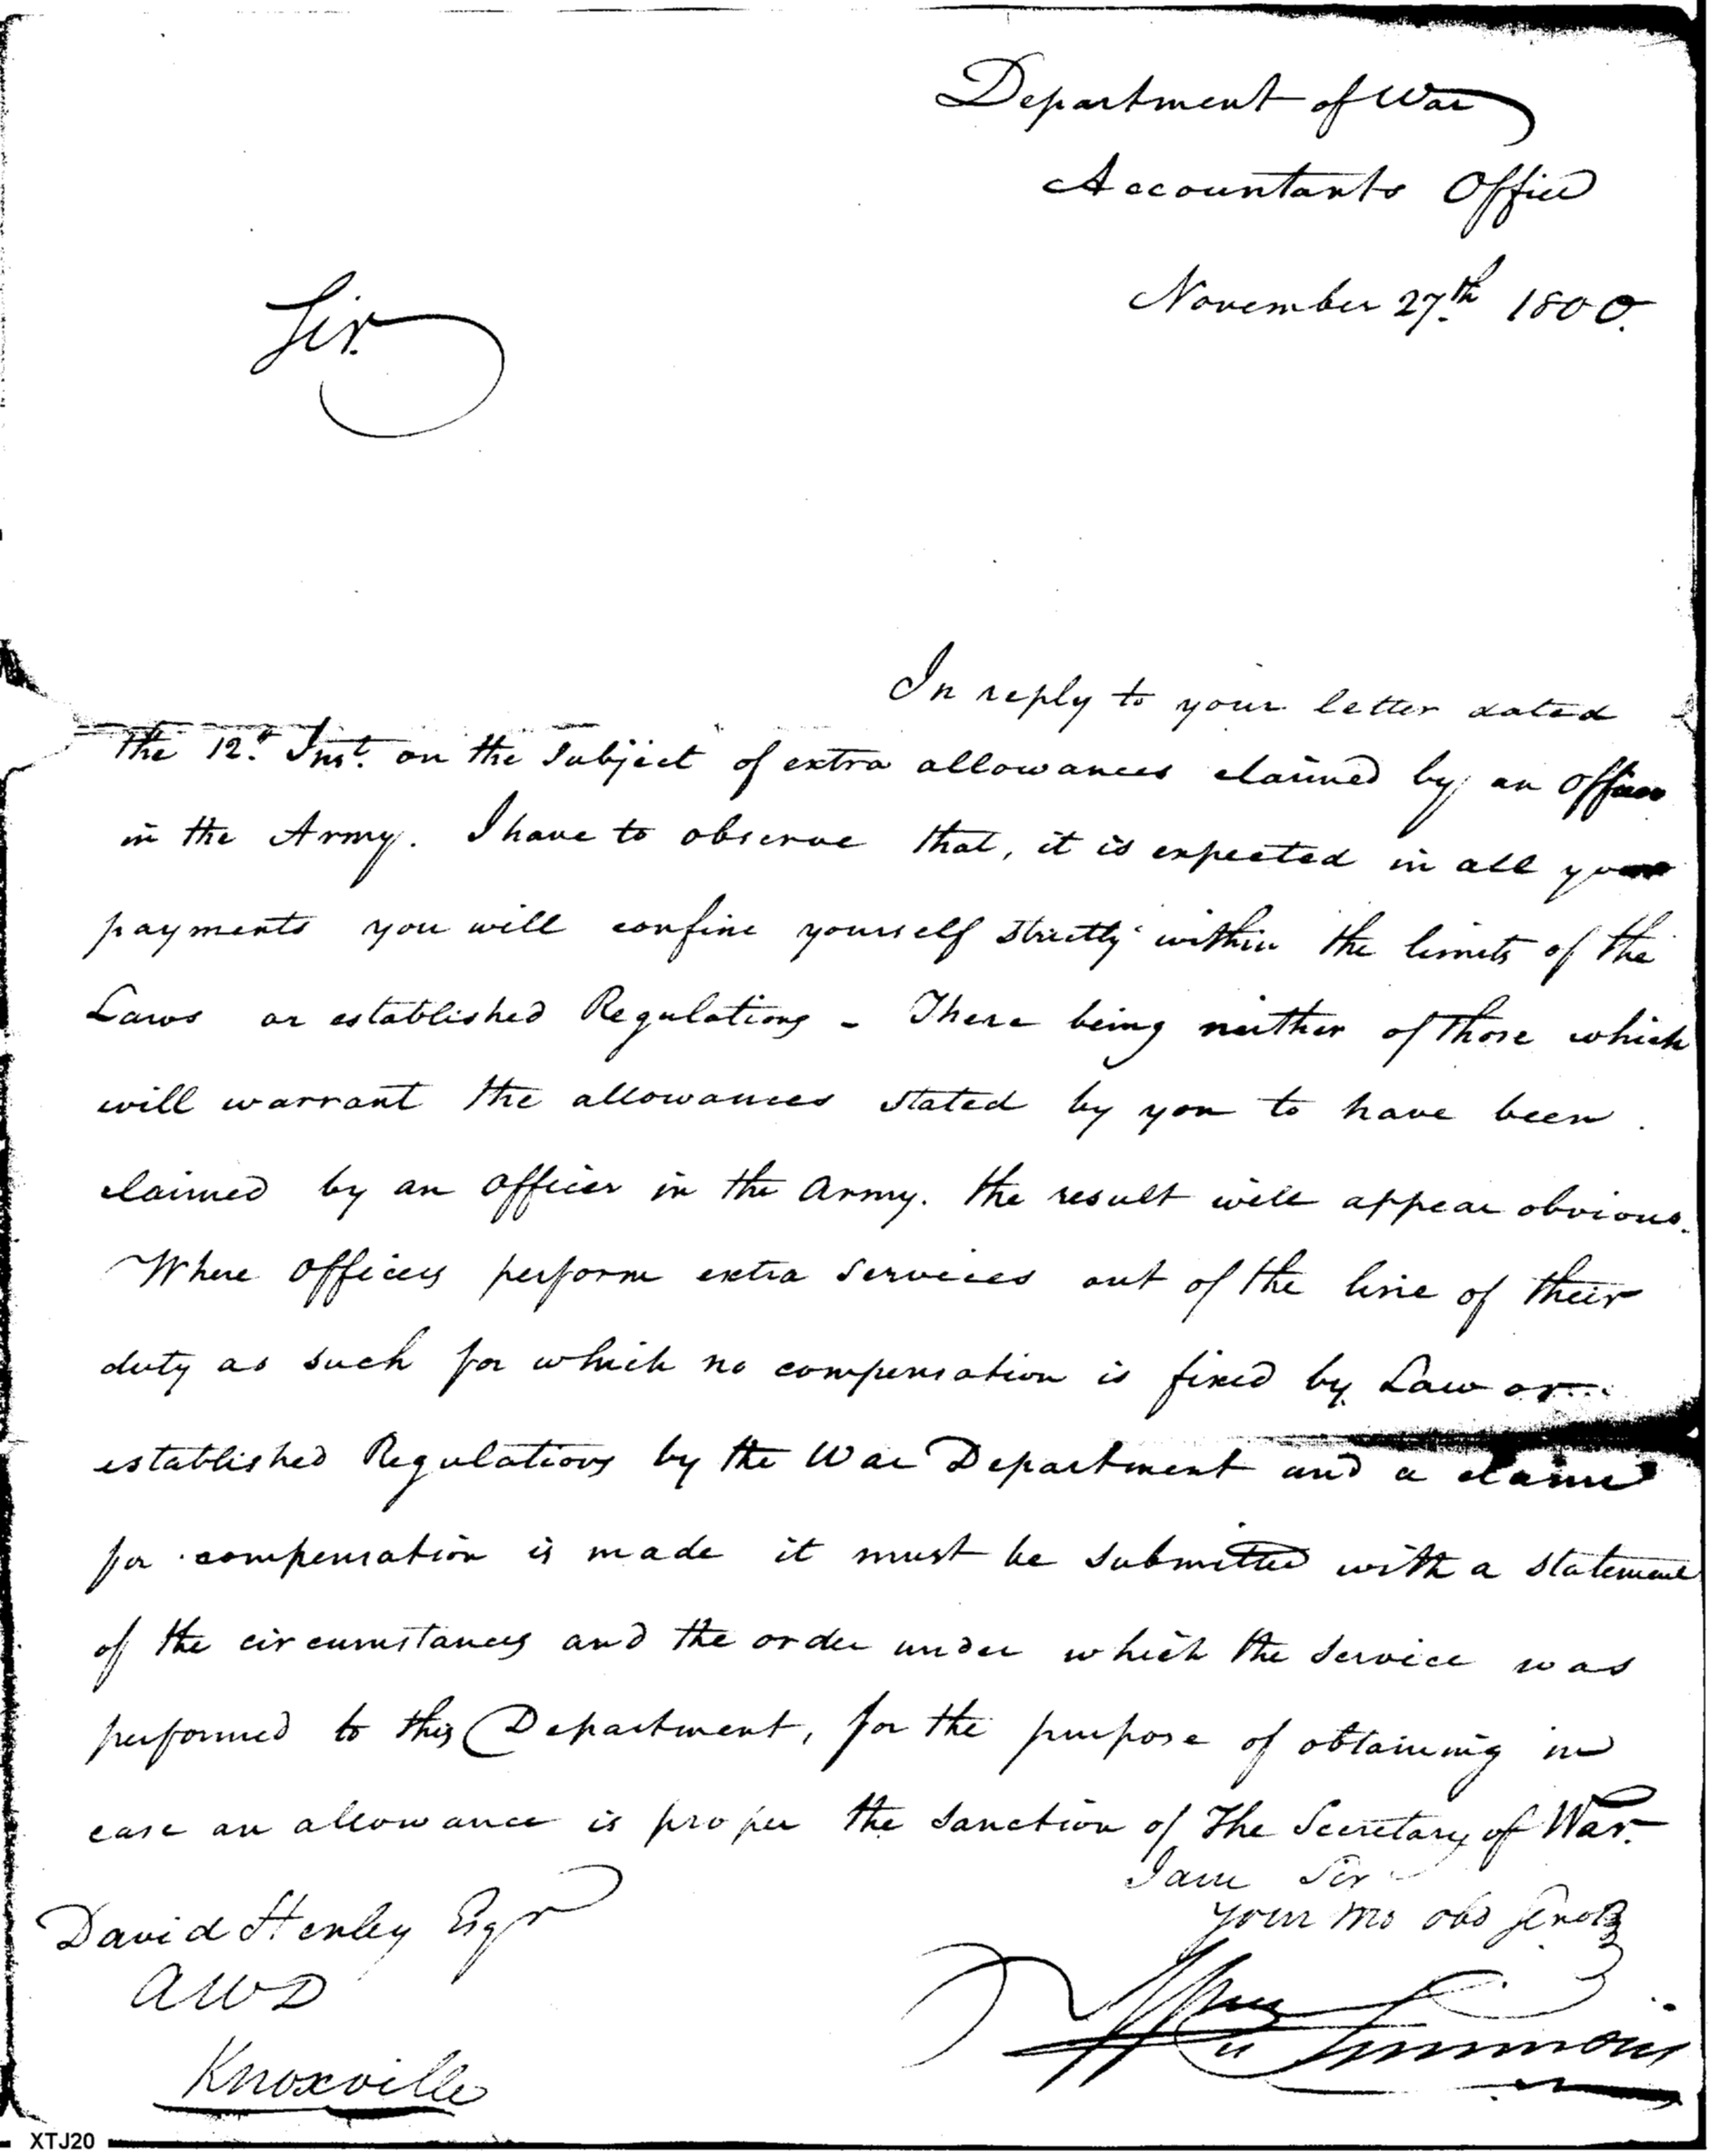 Department of War
Accountants Office
November 27th 1800.
Sir.
In reply to your letter dated
the 12th Inst. on the Subject of extra allowances claimed by an Officer
in the Army. I have to observe that, it is expected in all your
payments you will confine yourself strictly within the limits of the
Laws or established Regulations - There being neither of those which
will warrant the allowances stated by you to have been
claimed by an Officer in the Army. the result will appear obvious.
Where Officers perform extra Services out of the line of their
duty as such for which no compensation is fixed by Law or
established Regulations by the War Department and a claim
for compensation is made it must be submitted with a Statement
of the circumstances and the order under which the Service was
performed to this Department, for the purpose of obtaining in
case an allowance is proper the Sanction of The Secretary of War.
I am Sir
your Mo obd Servt
David Henley Esqr
AWD
Knoxville
Wm Simmons
XTJ20